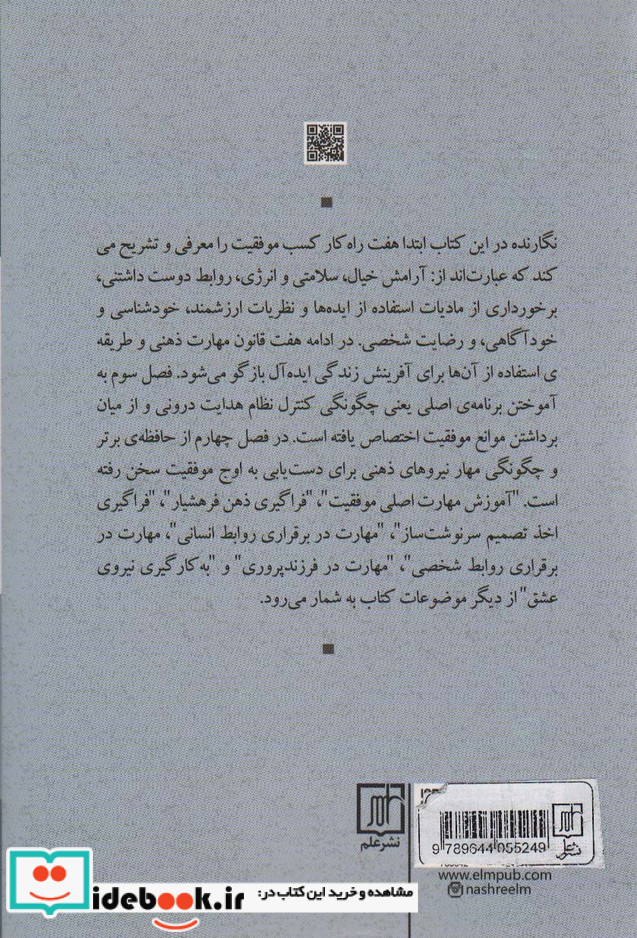 نگارنده در این کتاب ابتدا هفت راه‌کار کسب موفقیت را معرفی و تشریح می
کند که عبارت‌اند از: آرامش خیال، سلامتی و انرژی، روابط دوست داشتنی،
برخورداری از مادیات استفاده از ایده‌ها و نظریات ارزشمند، خودشناسی و
خودآگاهی، و رضایت شخصی. در ادامه هفت قانون مهارت ذهنی و طریقه
ی استفاده از آن‌ها برای آفرینش زندگی ایده‌آل بازگو می‌شود. فصل سوم به
آموختن برنامه‌ی اصلی یعنی چگونگی کنترل نظام هدایت درونی و از میان
برداشتن موانع موفقیت اختصاص یافته است. در فصل چهارم از حافظه‌ی برتر
و چگونگی مهار نیروهای ذهنی برای دست‌یابی به اوج موفقیت سخن رفته
است. "آموزش مهارت اصلی موفقیت"، "فراگیری ذهن فرهشیار"، "فراگیری
اخذ تصمیم سرنوشت‌ساز"، "مهارت در برقراری روابط انسانی"، مهارت در
برقراری روابط شخصی"، "مهارت در فرزندپروری" و "به‌کارگیری نیروی
عشق" از دیگر موضوعات کتاب به شمار می‌رود.
نشرعلم
9 789644 055249
www.elmpub.com
nashreelm
مشاهده و خرید این کتاب در:
idebook.ir